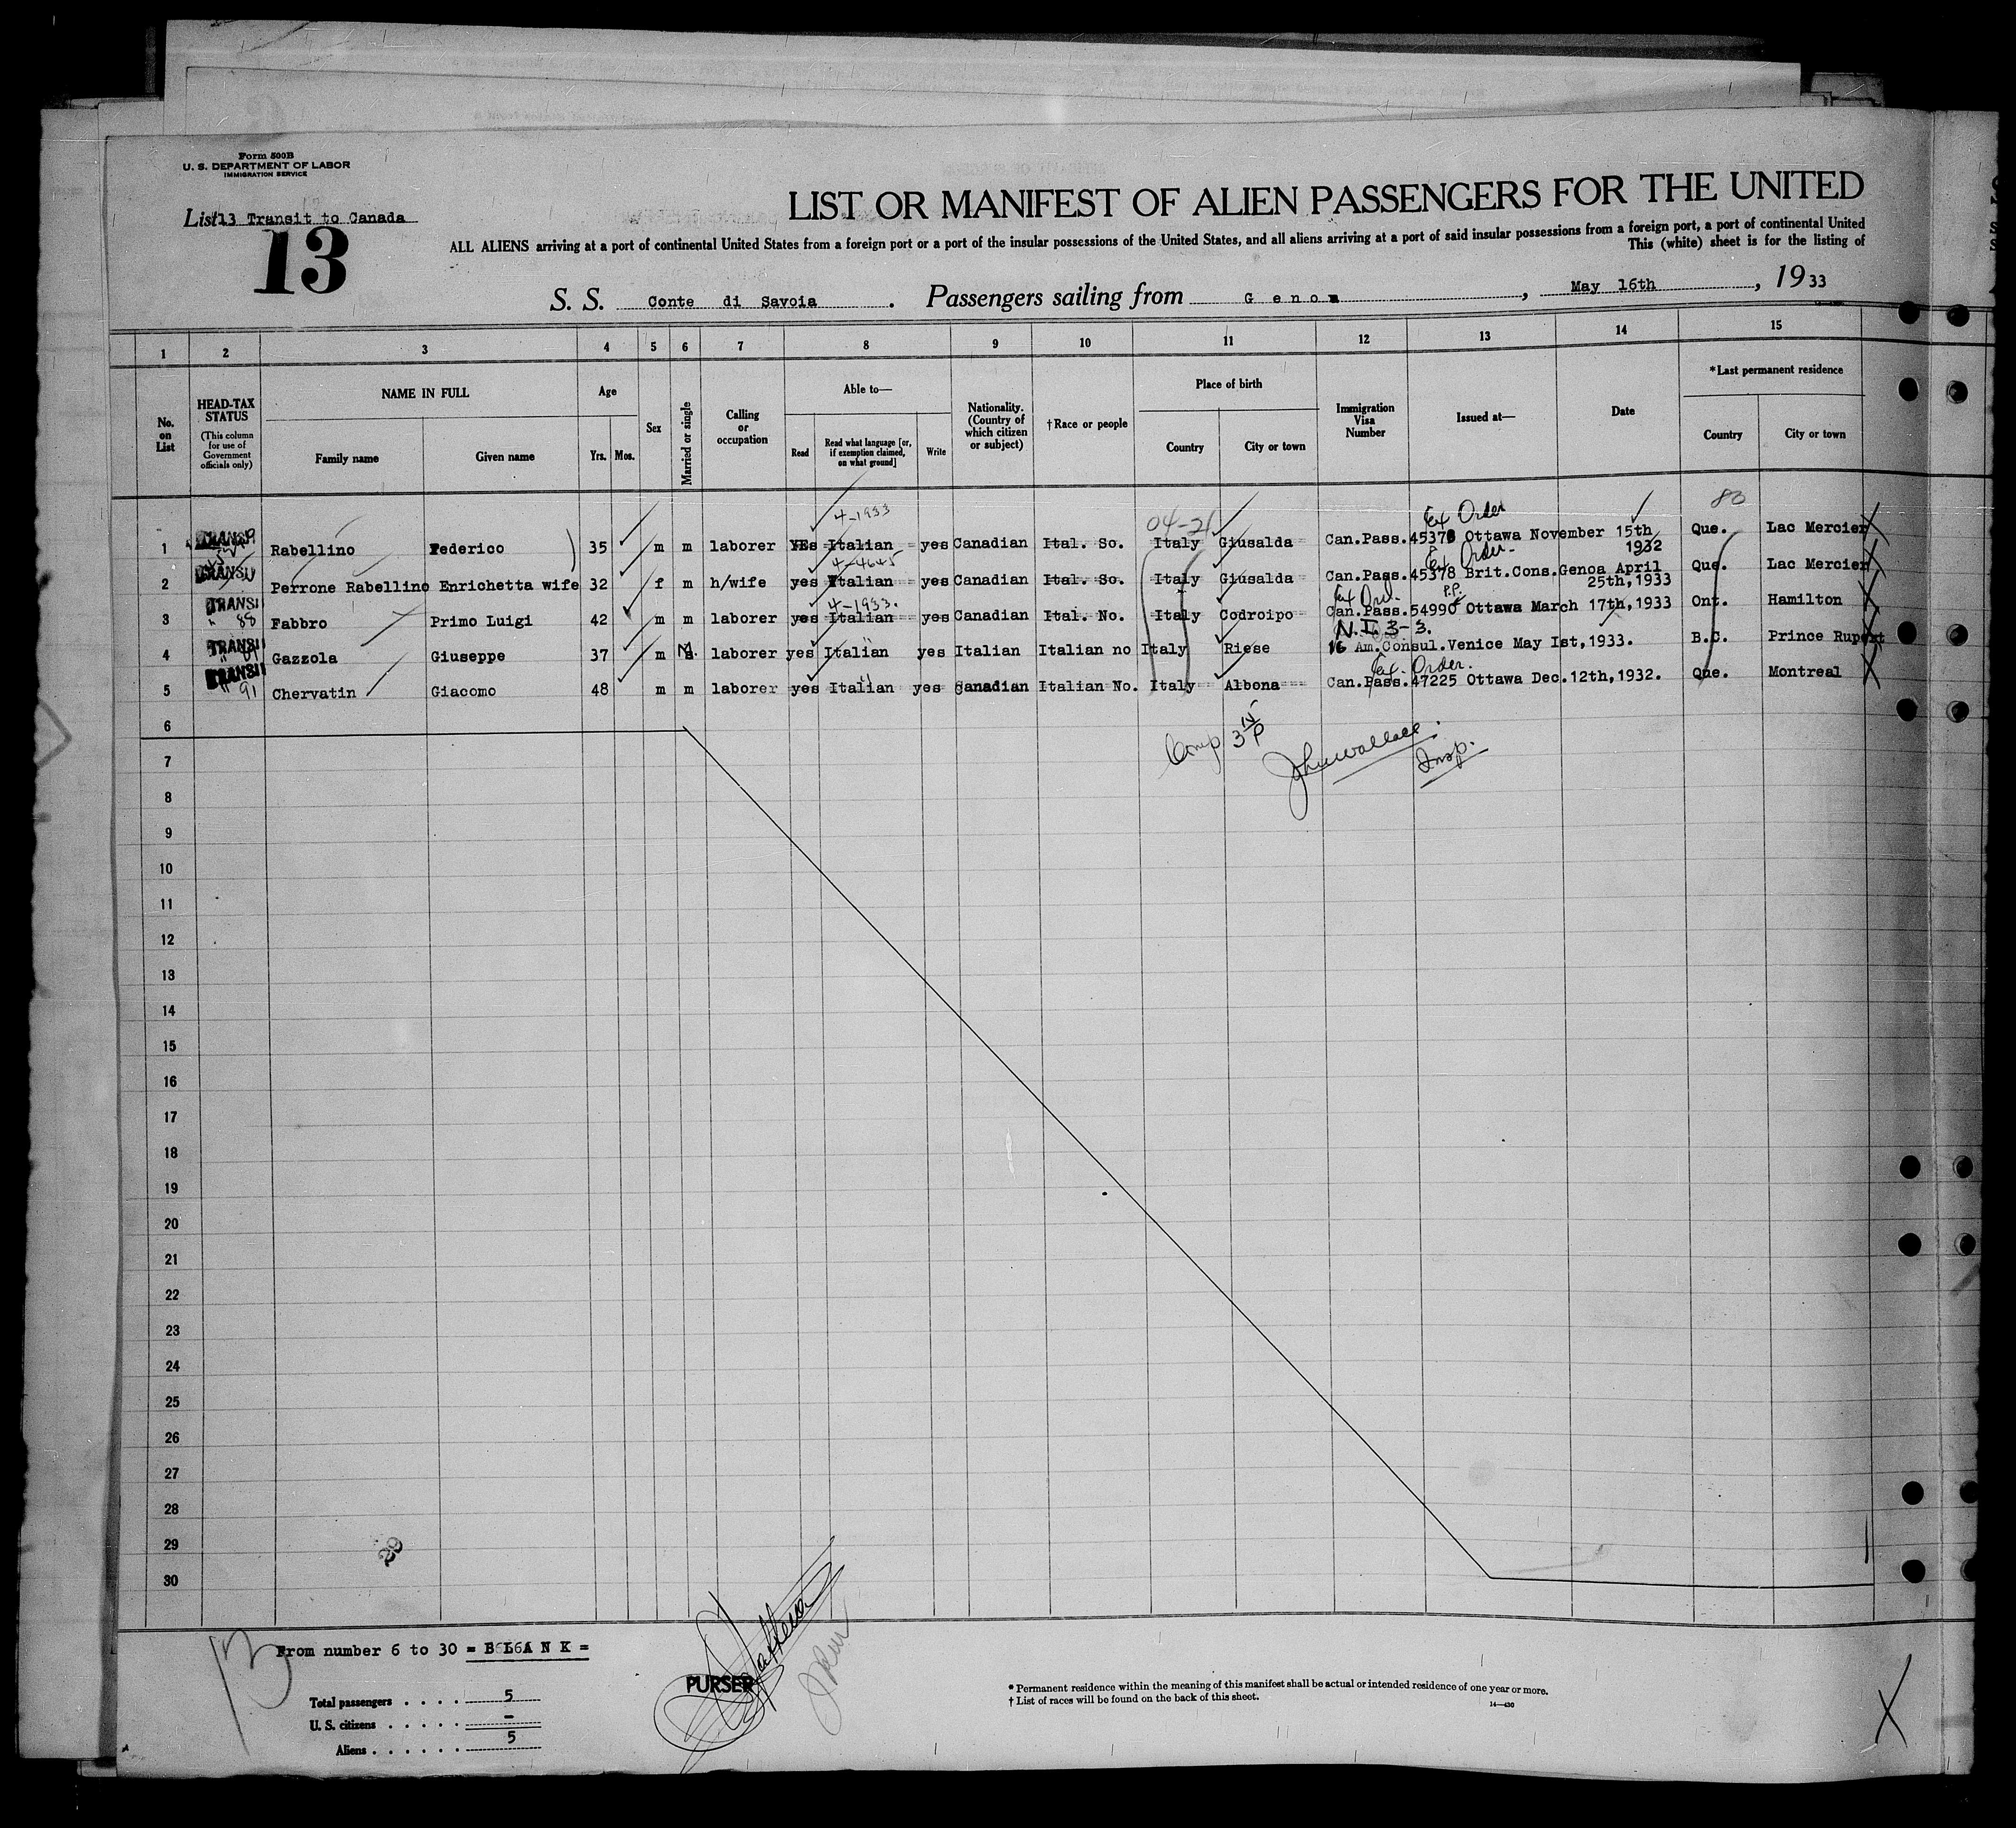 Form 500B
U. S. DEPARTMENT OF LABOR
IMMIGRATION SERVICE
List 13 Transit to Canada
13
LIST OR MANIFEST OF ALIEN PASSENGERS FOR THE UNITED
ALL ALIENS arriving at a port of continental United States from a foreign port or a port of the insular possessions of the United States, and all aliens arriving at a port of said insular possessions from a foreign port, a port of continental United
This (white) sheet is for the listing of
S. S. Conte di Savoia . Passengers sailing from Genoa , May 16th , 1933
1 2 3 4 5 6 7 8 9 10 11 12 13 14 15
No. on List
HEAD-TAX STATUS
(This column for use of Government officials only)
NAME IN FULL
Family name Given name
Age
Yrs. Mos.
Sex
Married or single
Calling or occupation
Able to—
Read Read what language [or, if exemption claimed, on what ground] Write
Nationality. (Country of which citizen or subject)
†Race or people
Place of birth
Country City or town
Immigration Visa Number
Issued at—
Date
*Last permanent residence
Country City or town
4-1933 04-21 Ex Order 80
1 TRANSI Rabellino Federico 35 m m laborer YEs Italian yes Canadian Ital. So. Italy Giusalda Can.Pass.45378 Ottawa November 15th 1932 Que. Lac Mercier
4-4645 Ex Order
2 TRANSI Perrone Rabellino Enrichetta wife 32 f m h/wife yes Italian yes Canadian Ital. So. Italy Giusalda Can.Pass.45378 Brit.Cons.Genoa April 25th,1933 Que. Lac Mercier
4-1933. Ex Ord. P.P.
3 TRANSI 88 Fabbro Primo Luigi 42 m m laborer yes Italian yes Canadian Ital. No. Italy Codroipo Can.Pass.54990 Ottawa March 17th,1933 Ont. Hamilton
N.I 3-3.
4 TRANSI Gazzola Giuseppe 37 m M. laborer yes Italian yes Italian Italian no Italy Riese 16 Am.Consul.Venice May Ist,1933. B.C. Prince Rupert
Ex. Order.
5 TRANSI 91 Chervatin Giacomo 48 m m laborer yes Italian yes Canadian Italian No. Italy Albona Can.Pass.47225 Ottawa Dec.12th,1932. Que. Montreal
6
7
John Wallace Insp.
8
9
10
11
12
13
14
15
16
17
18
19
20
21
22
23
24
25
26
27
28
29
30
13
From number 6 to 30 = B L A N K =
PURSER
Total passengers . . . . 5
U. S. citizens . . . . . –
Aliens . . . . . . 5
* Permanent residence within the meaning of this manifest shall be actual or intended residence of one year or more.
† List of races will be found on the back of this sheet.
14—430
X